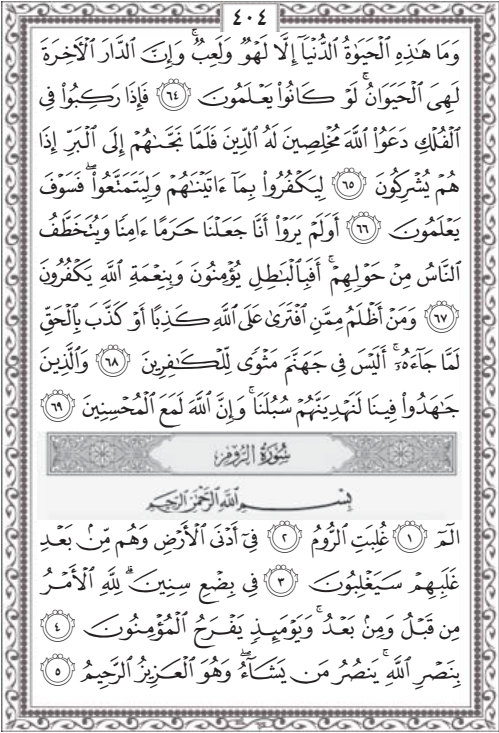 ٤٠٤
وَمَا هَٰذِهِ ٱلْحَيَوٰةُ ٱلدُّنْيَآ إِلَّا لَهْوٌ وَلَعِبٌ ۚ وَإِنَّ ٱلدَّارَ ٱلْأَخِرَةَ
لَهِىَ ٱلْحَيَوَانُ ۚ لَوْ كَانُوا۟ يَعْلَمُونَ ٦٤ فَإِذَا رَكِبُوا۟ فِى
ٱلْفُلْكِ دَعَوُا۟ ٱللَّهَ مُخْلِصِينَ لَهُ ٱلدِّينَ فَلَمَّا نَجَّىٰهُمْ إِلَى ٱلْبَرِّ إِذَا
هُمْ يُشْرِكُونَ ٦٥ لِيَكْفُرُوا۟ بِمَآ ءَاتَيْنَٰهُمْ وَلِيَتَمَتَّعُوا۟ ۖ فَسَوْفَ
يَعْلَمُونَ ٦٦ أَوَلَمْ يَرَوْا۟ أَنَّا جَعَلْنَا حَرَمًا ءَامِنًا وَيُتَخَطَّفُ
ٱلنَّاسُ مِنْ حَوْلِهِمْ ۚ أَفَبِٱلْبَٰطِلِ يُؤْمِنُونَ وَبِنِعْمَةِ ٱللَّهِ يَكْفُرُونَ
٦٧ وَمَنْ أَظْلَمُ مِمَّنِ ٱفْتَرَىٰ عَلَى ٱللَّهِ كَذِبًا أَوْ كَذَّبَ بِٱلْحَقِّ
لَمَّا جَآءَهُۥٓ ۚ أَلَيْسَ فِى جَهَنَّمَ مَثْوًى لِّلْكَٰفِرِينَ ٦٨ وَٱلَّذِينَ
جَٰهَدُوا۟ فِينَا لَنَهْدِيَنَّهُمْ سُبُلَنَا ۚ وَإِنَّ ٱللَّهَ لَمَعَ ٱلْمُحْسِنِينَ ٦٩
سُورَةُ الرُّومِ
بِسْمِ ٱللَّهِ ٱلرَّحْمَٰنِ ٱلرَّحِيمِ
الٓمٓ ١ غُلِبَتِ ٱلرُّومُ ٢ فِىٓ أَدْنَى ٱلْأَرْضِ وَهُم مِّنۢ بَعْدِ
غَلَبِهِمْ سَيَغْلِبُونَ ٣ فِى بِضْعِ سِنِينَ ۗ لِلَّهِ ٱلْأَمْرُ
مِن قَبْلُ وَمِنۢ بَعْدُ ۚ وَيَوْمَئِذٍ يَفْرَحُ ٱلْمُؤْمِنُونَ ٤
بِنَصْرِ ٱللَّهِ ۚ يَنصُرُ مَن يَشَآءُ ۖ وَهُوَ ٱلْعَزِيزُ ٱلرَّحِيمُ ٥